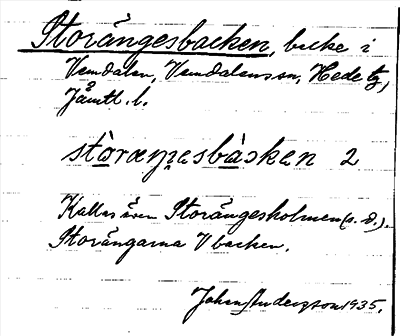 Storängesbacken, backe i
Vemdalen, Vemdalens sn, Hede tg,
Jämtl. l.
stòræŋesbàcken 2
Kallas även Storängesholmen (s. d.).
Storängarna V backen.
Johan Anderzson 1935.